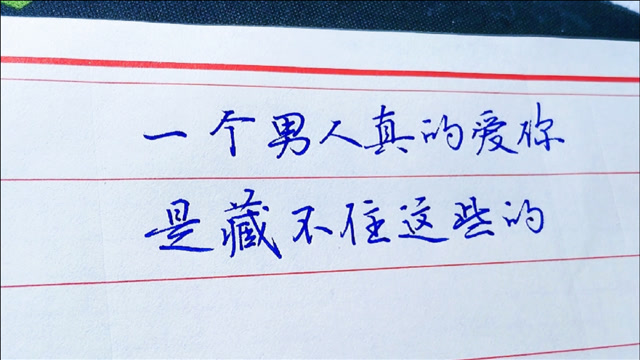 一个男人真的爱你
是藏不住这些的